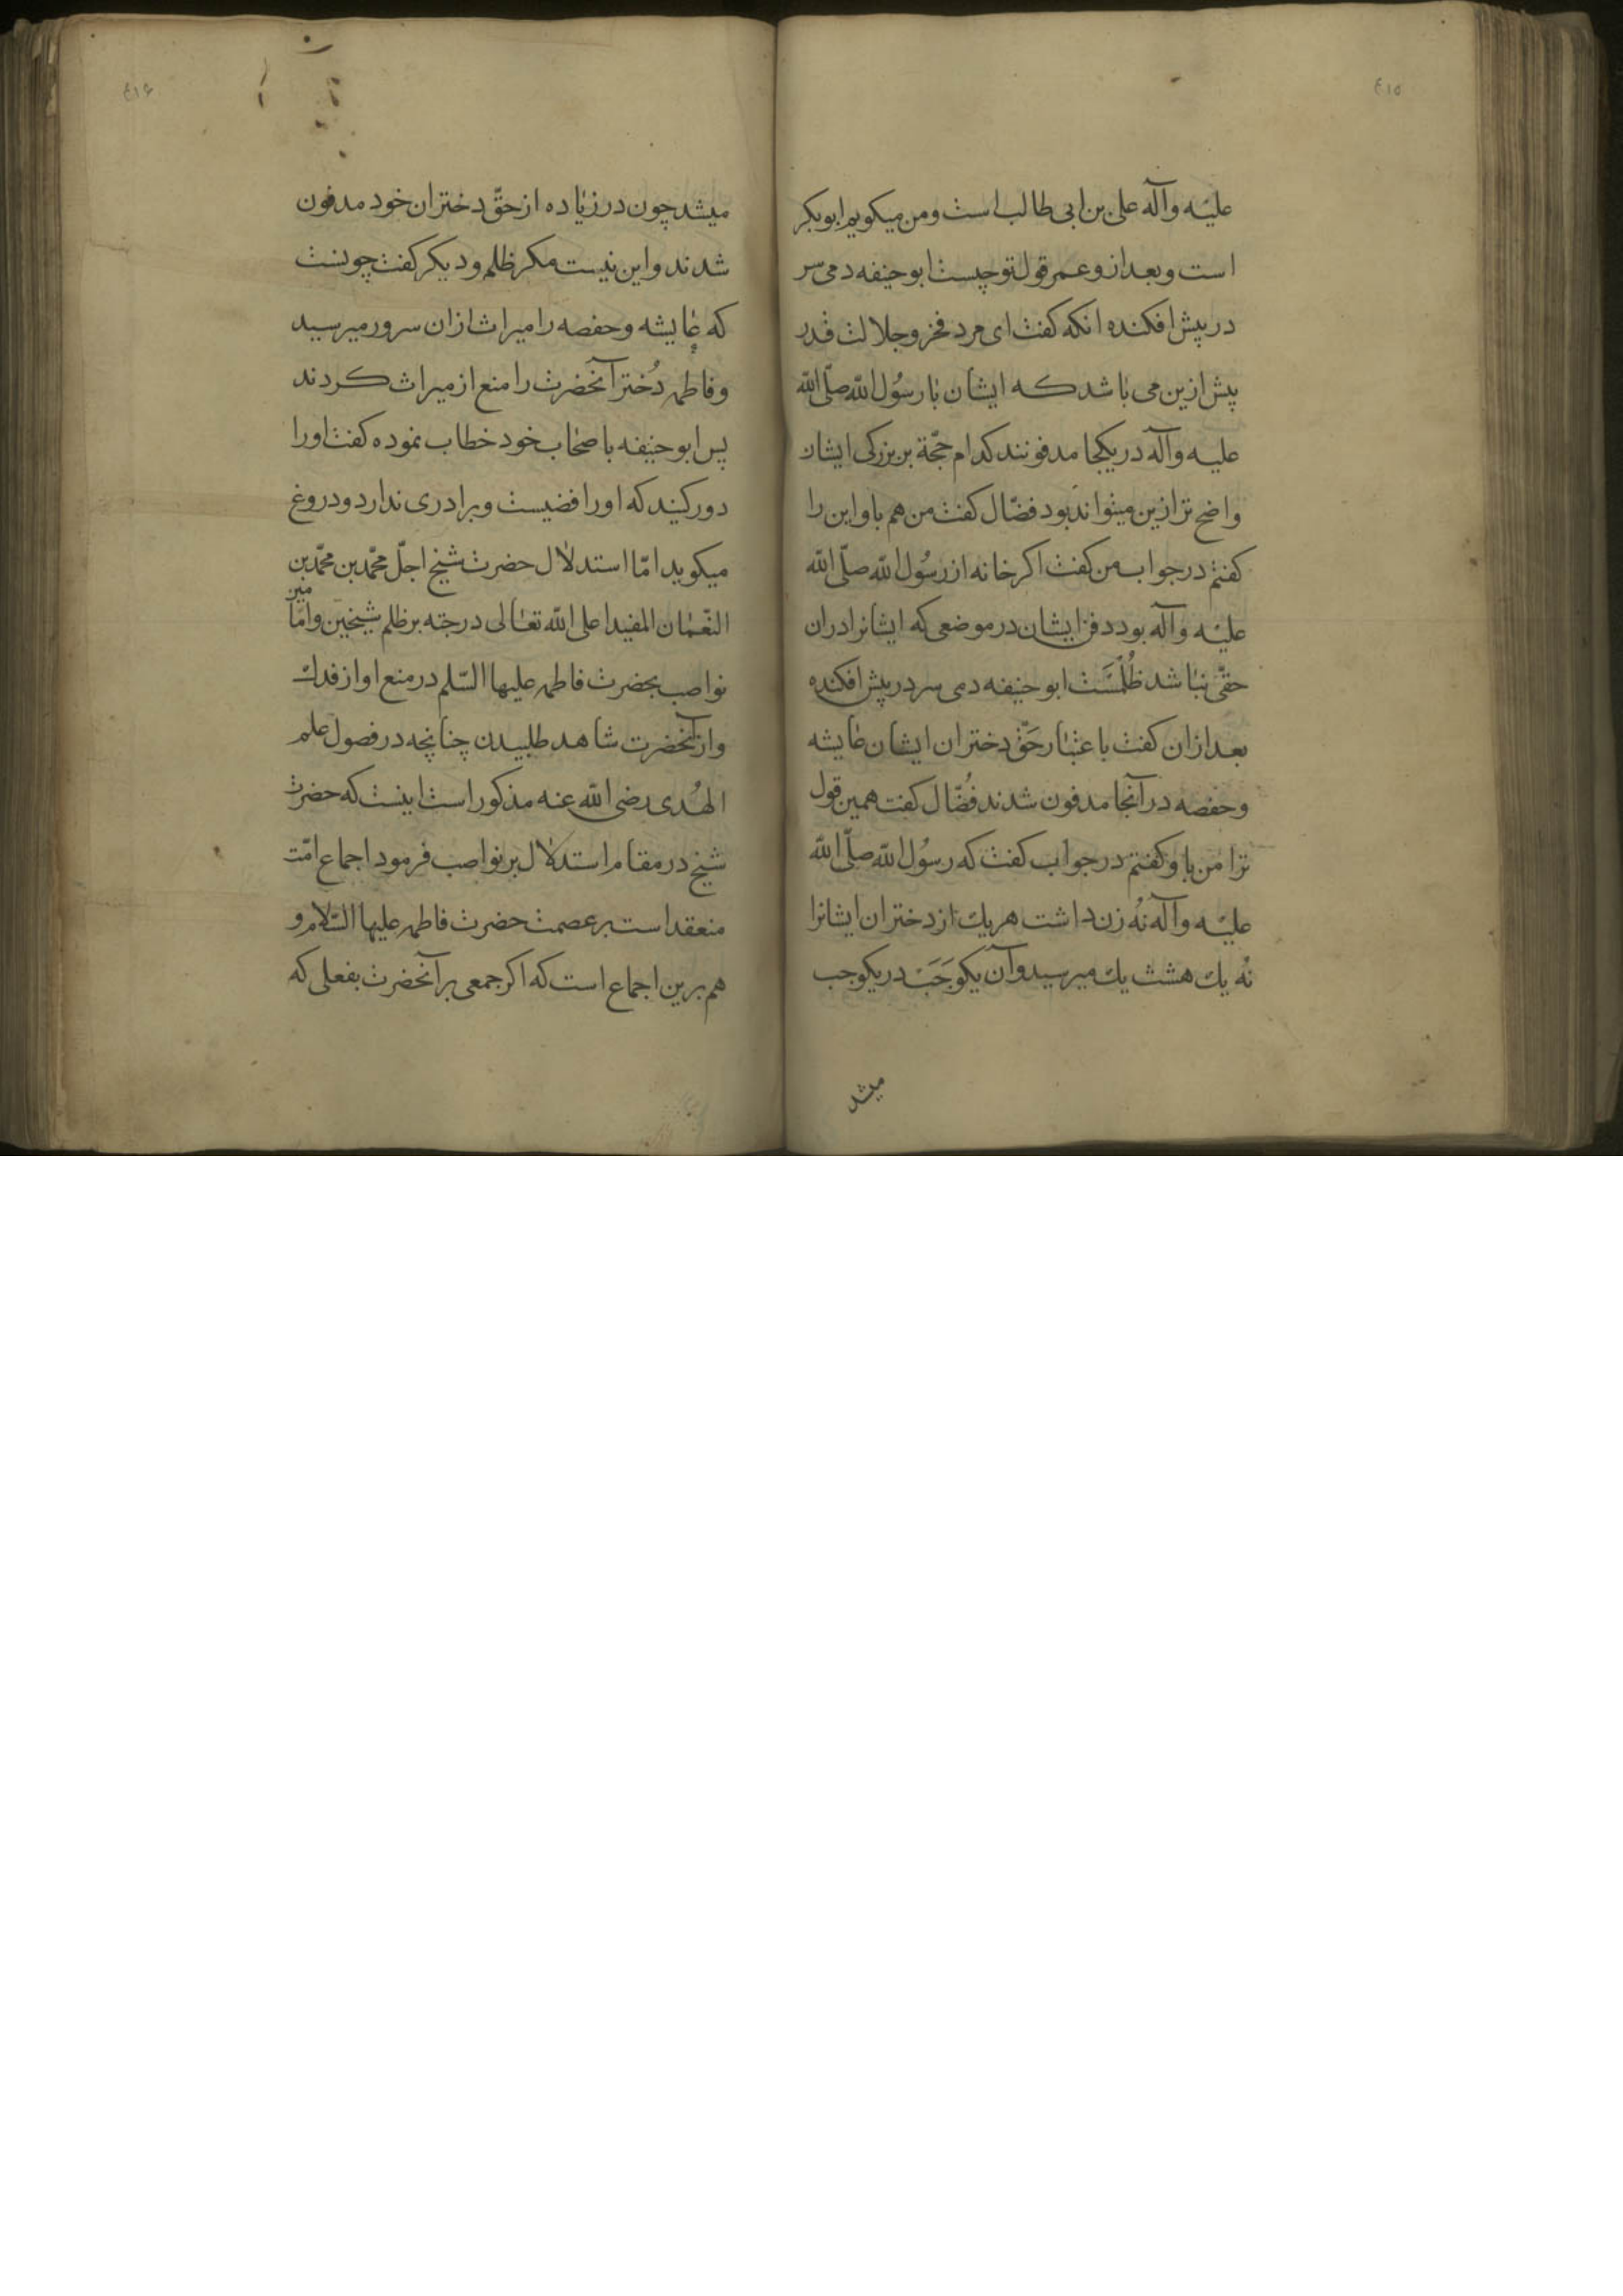 ٤١٥
علیه وآله علی بن ابی طالب است ومن میکویم ابوبکر
است وبعد ازو عمر قول تو چیست ابو حنیفه دمی سر
در پیش افکنده انکه کفت ای مرد فخر وجلالت قدر
پیش ازین می باشد که ایشان با رسُول الله صلّی الله
علیه وآله در یکجا مدفونند کدام حجّة بر بزرکی ایشان
واضح تر ازین میتواند بود فضّال کفت من هم باو این را
کفتم در جواب من کفت اکر خانه از رسُول الله صلّی الله
علیه وآله بود دفن ایشان در موضعی که ایشانرا دران
حقّی نباشد ظُلمَست ابو حنیفه دمی سر در پیش افکنده
بعد ازان کفت با عتبار حَقّ دختران ایشان عایشه
وحفصه در آنجا مدفون شدند فُضّال کفت همین قول
ترا من باو کفتم در جواب کفت که رسُول الله صلّی الله
علیه وآله نُه زن داشت هر یك از دختران ایشانرا
نُه یك هشت یك میرسید وآن یکوجَبَ در یکوجب
میشد
٤١۶
میشد چون در زیاده از حقّ دختران خود مدفون
شدند واین نیست مکر ظلم ودیکر کفت چونست
که عایشه وحفصه را میراث ازان سرور میرسید
وفاطمه دُختر آنحضرت را منع از میراث کردند
پس ابو حنیفه باصحاب خود خطاب نموده کفت اورا
دور کنید که اورافضیست وبرادری ندارد ودروغ
میکوید امّا استدلال حضرت شیخ اجلّ محمّد بن محمّد بن
النّعمان المفید اعلی الله تعالی درجته بر ظلم شیخین وامّا مین
نواصب بحضرت فاطمه علیها السّلم در منع او از فدك
واز آنحضرت شاهد طلبیدن چنانچه در فصول علم
الهُدی رضی الله عنه مذکور است اینست که حضرت
شیخ در مقام استدلال بر نواصب فرمود اجماع امّت
منعقد است بر عصمت حضرت فاطمه علیها السّلام و
هم برین اجماع است که اکر جمعی بر آنحضرت بفعلی که